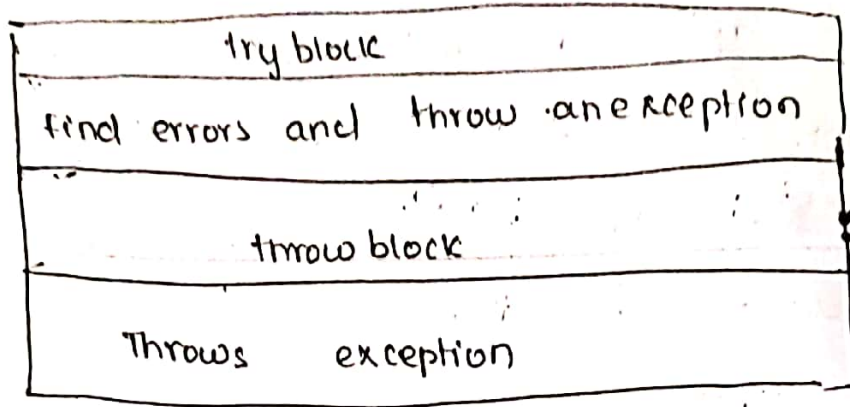 try block
find errors and throw an exception
throw block
Throws exception